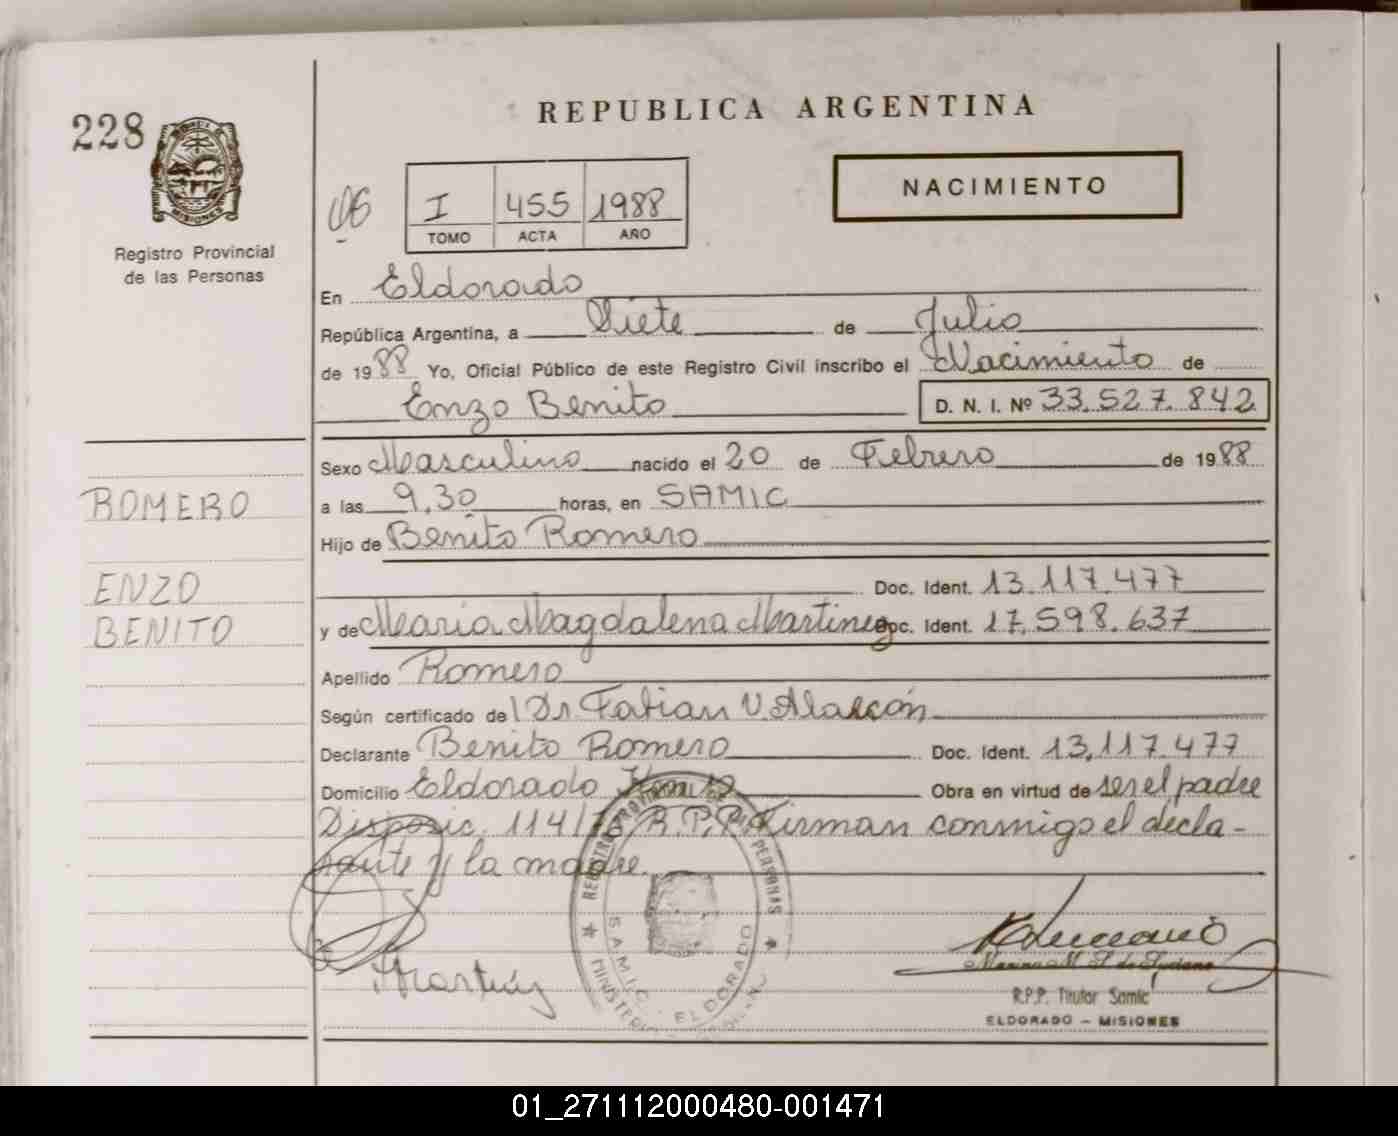 228
Registro Provincial
de las Personas
REPUBLICA ARGENTINA
NACIMIENTO
I 455 1988
TOMO ACTA AÑO
En Eldorado
República Argentina, a Siete de Julio
de 1988 Yo, Oficial Público de este Registro Civil inscribo el Nacimiento de
Enzo Benito D. N. I. Nº 33.527.842
Sexo Masculino nacido el 20 de Febrero de 1988
a las 9,30 horas, en SAMIC
Hijo de Benito Romero
Doc. Ident. 13.117.477
y de Maria Magdalena Martinez Doc. Ident. 17.598.637
Apellido Romero
Según certificado del Dr. Fabian V. Alarcón
Declarante Benito Romero Doc. Ident. 13,117.477
Domicilio Eldorado Obra en virtud de ser el padre
Disposic. 114/ R.P.P. Firman conmigo el decla-
rante y la madre.
ROMERO
ENZO
BENITO
REGISTRO PROVINCIAL DE LAS PERSONAS
S.A.M.I.C. ELDORADO
R.P.P. Titular Samic
ELDORADO - MISIONES
01_271112000480-001471